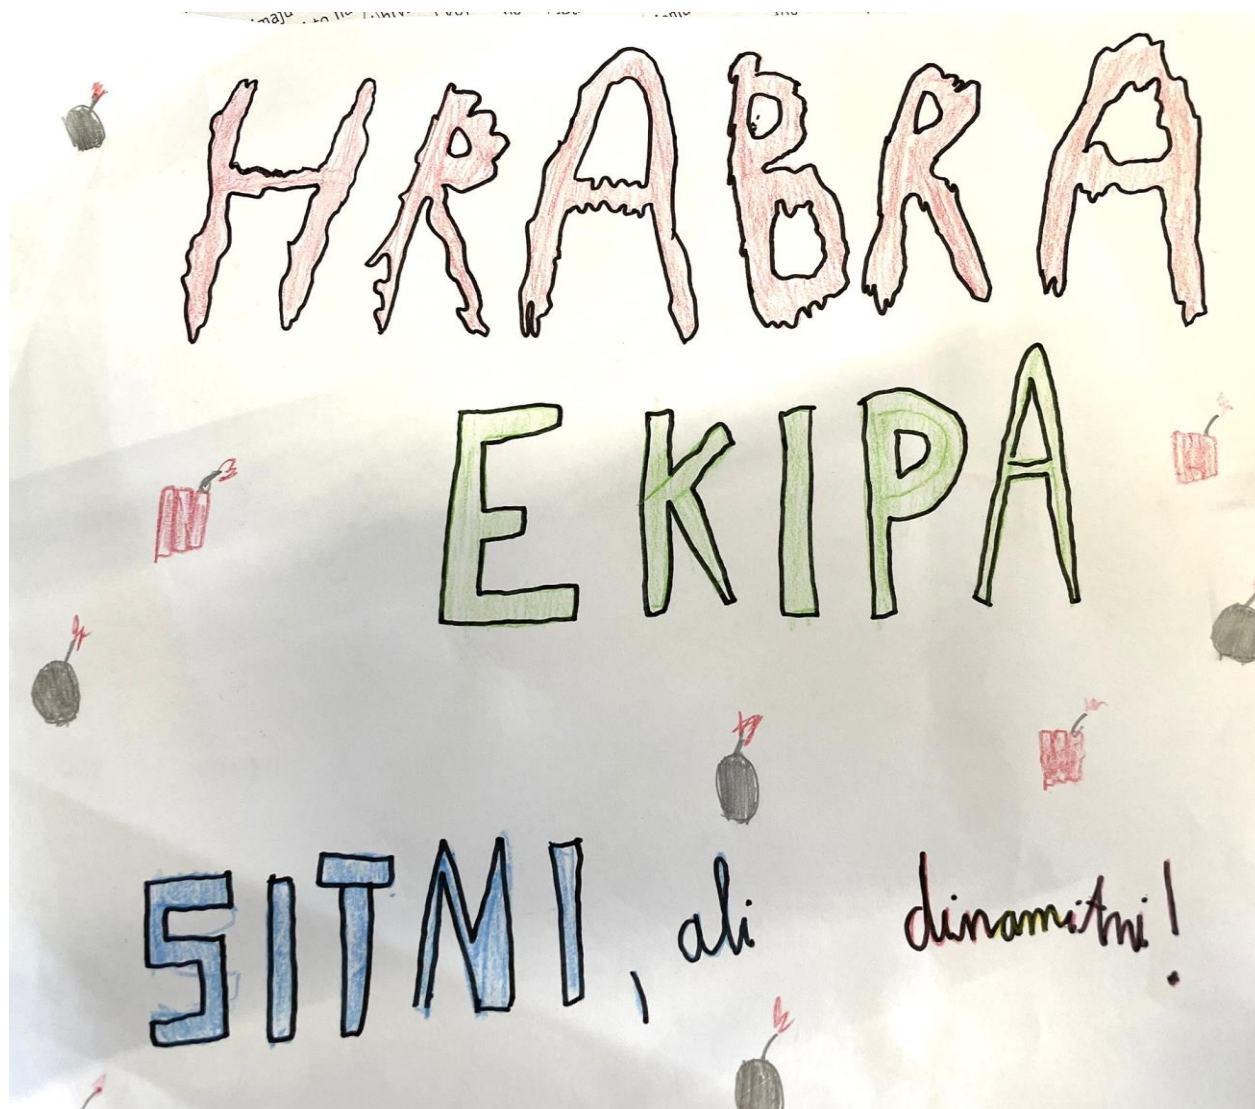 HRABRA
EKIPA
SITNI, ali dinamitni!